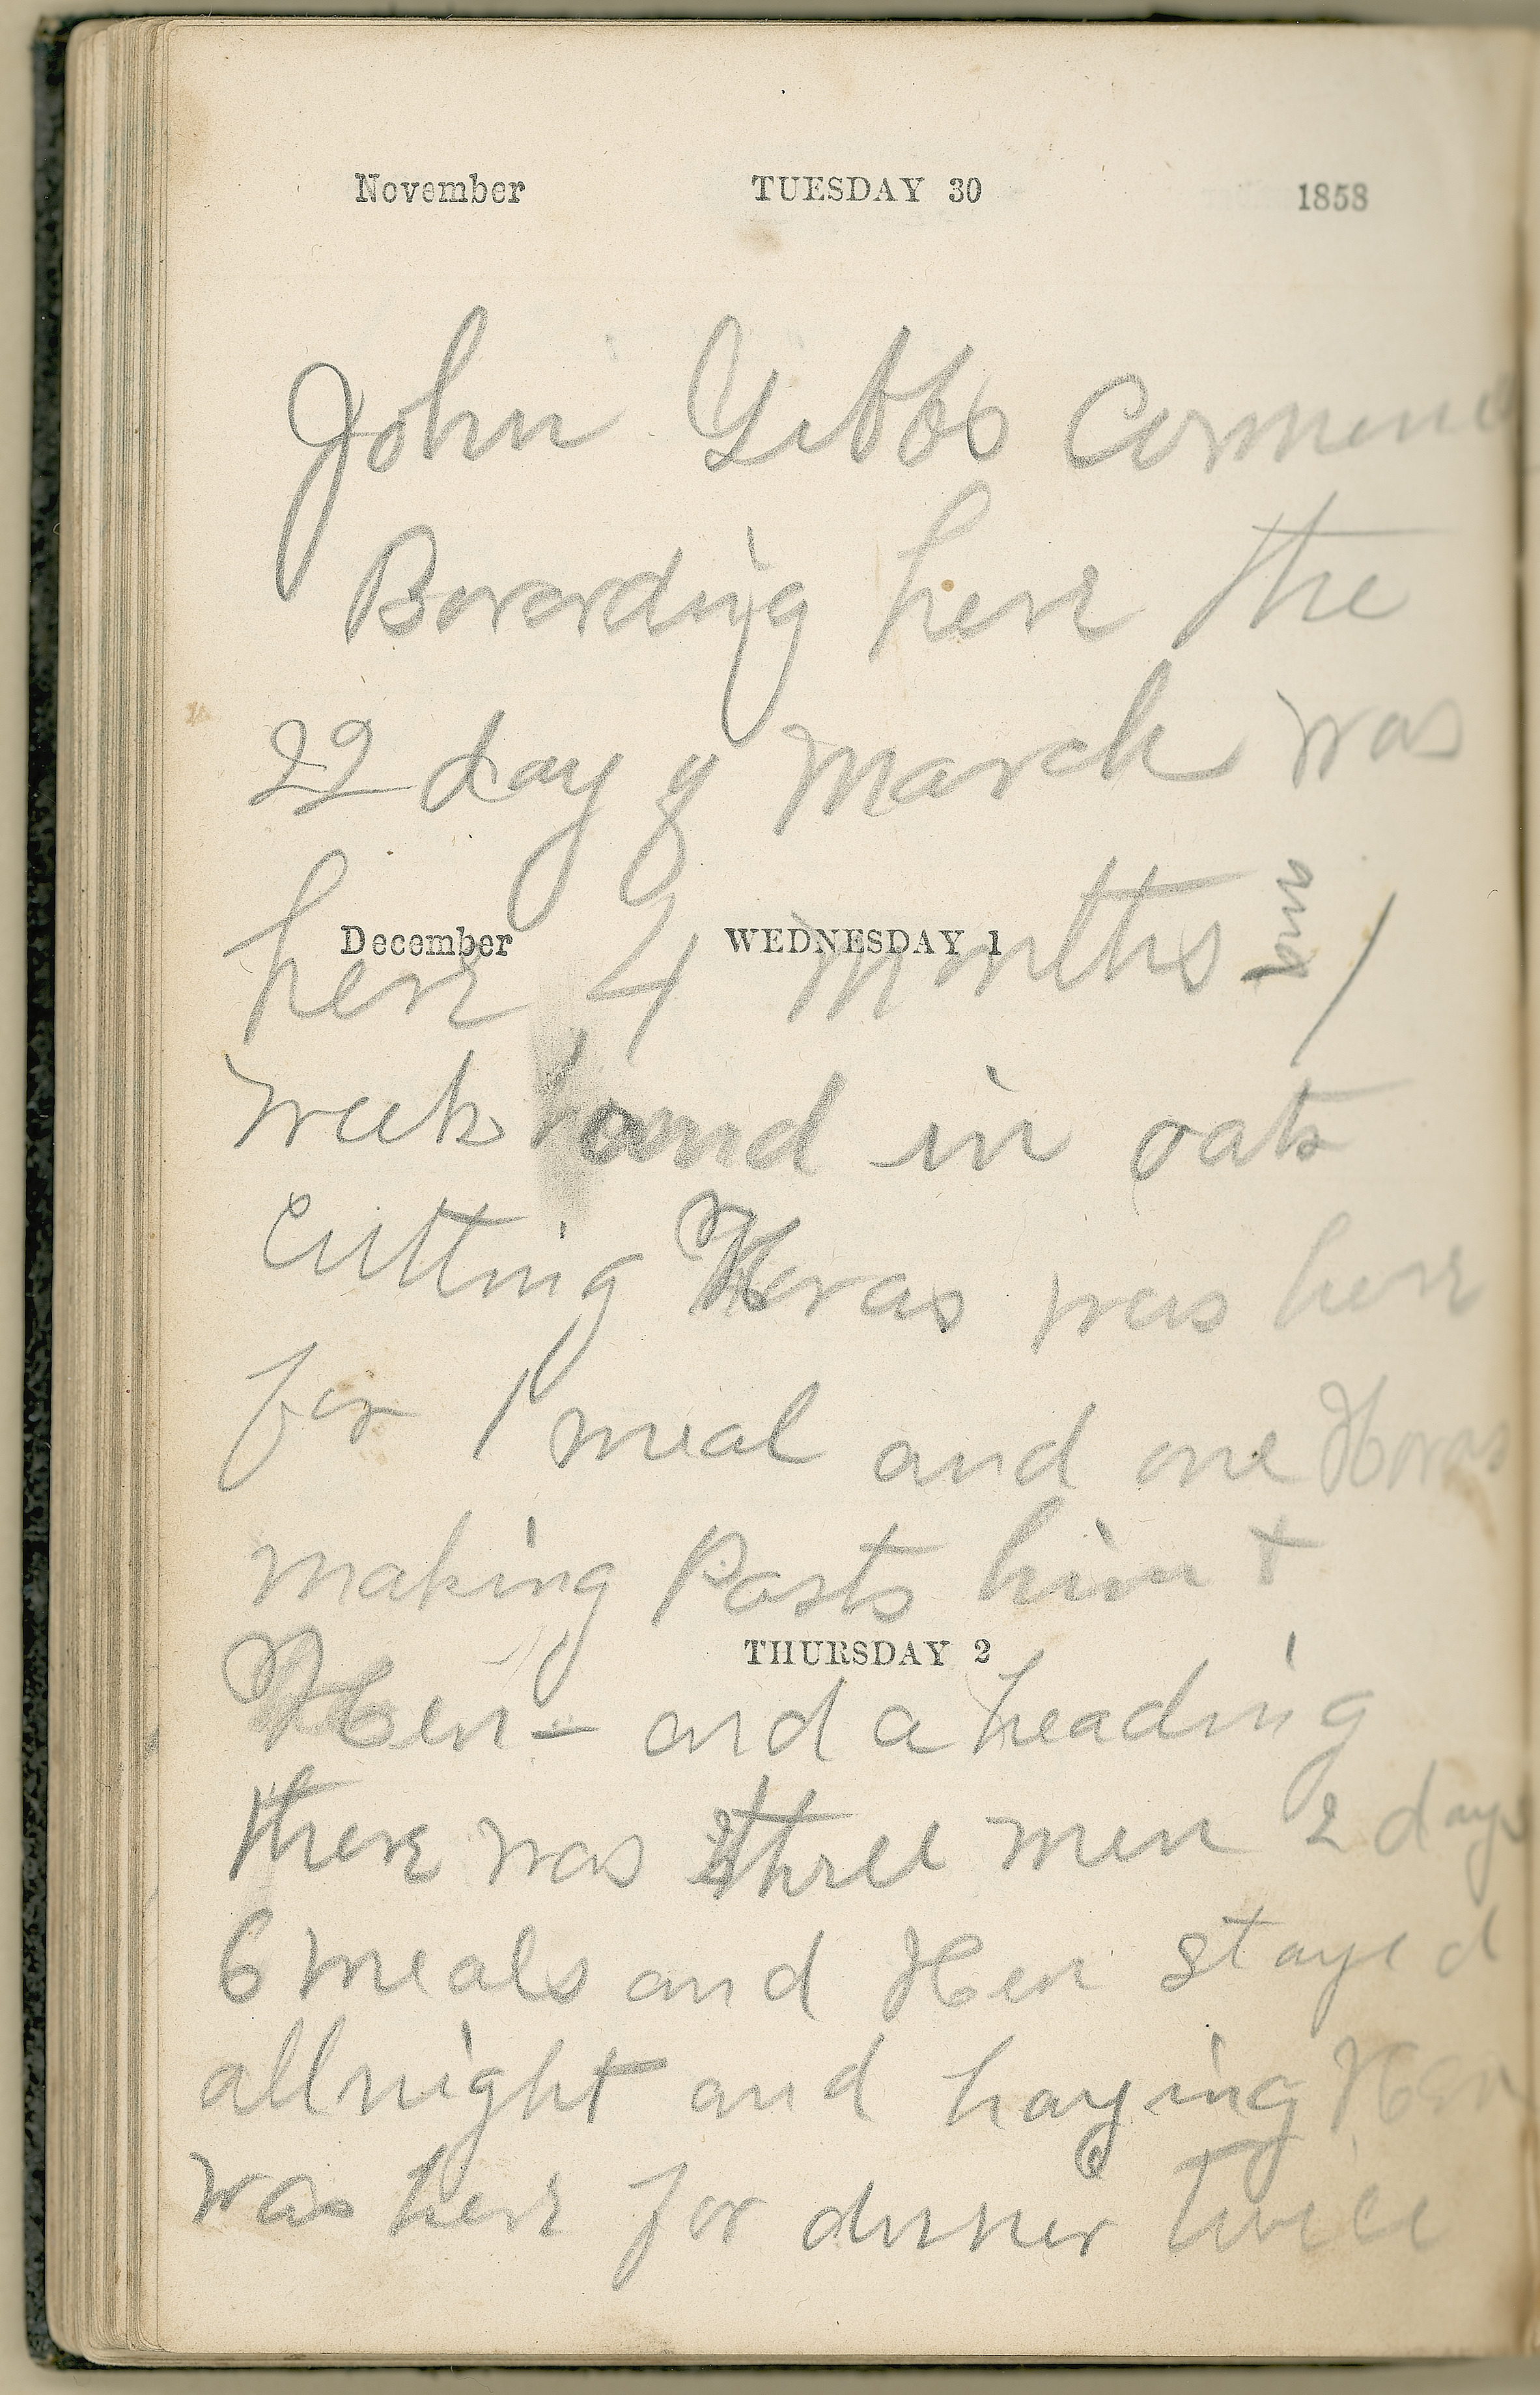 November TUESDAY 30 1858
John Gibbs Commence
Boarding here the
22 day of March was
here 4 months and 1
December WEDNESDAY 1
week and in oats
cutting Horas was here
for 1 meal and one Horas
making Posts him +
THURSDAY 2
Hen - and a heading
there was three men 2 days
6 meals and Hen stayed
allnight and haying Hen
was here for dinner twice